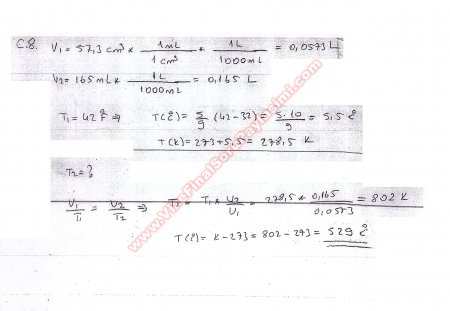 C.8. V₁ = 57,3 cm³ * 1mL/1cm³ * 1L/1000mL = 0,0573 L
V₂ = 165 mL * 1L/1000mL = 0,165 L
T₁ = 42 °F ⇒ T(°C) = 5/9 (42-32) = 5.10/9 = 5,5 °C
T(K) = 273+5,5 = 278,5 K
T₂ = ?
V₁/T₁ = V₂/T₂ ⇒ T₂ = T₁ * V₂/V₁ = 278,5 * 0,165/0,0573 = 802 K
T(°C) = K-273 = 802-273 = 529 °C